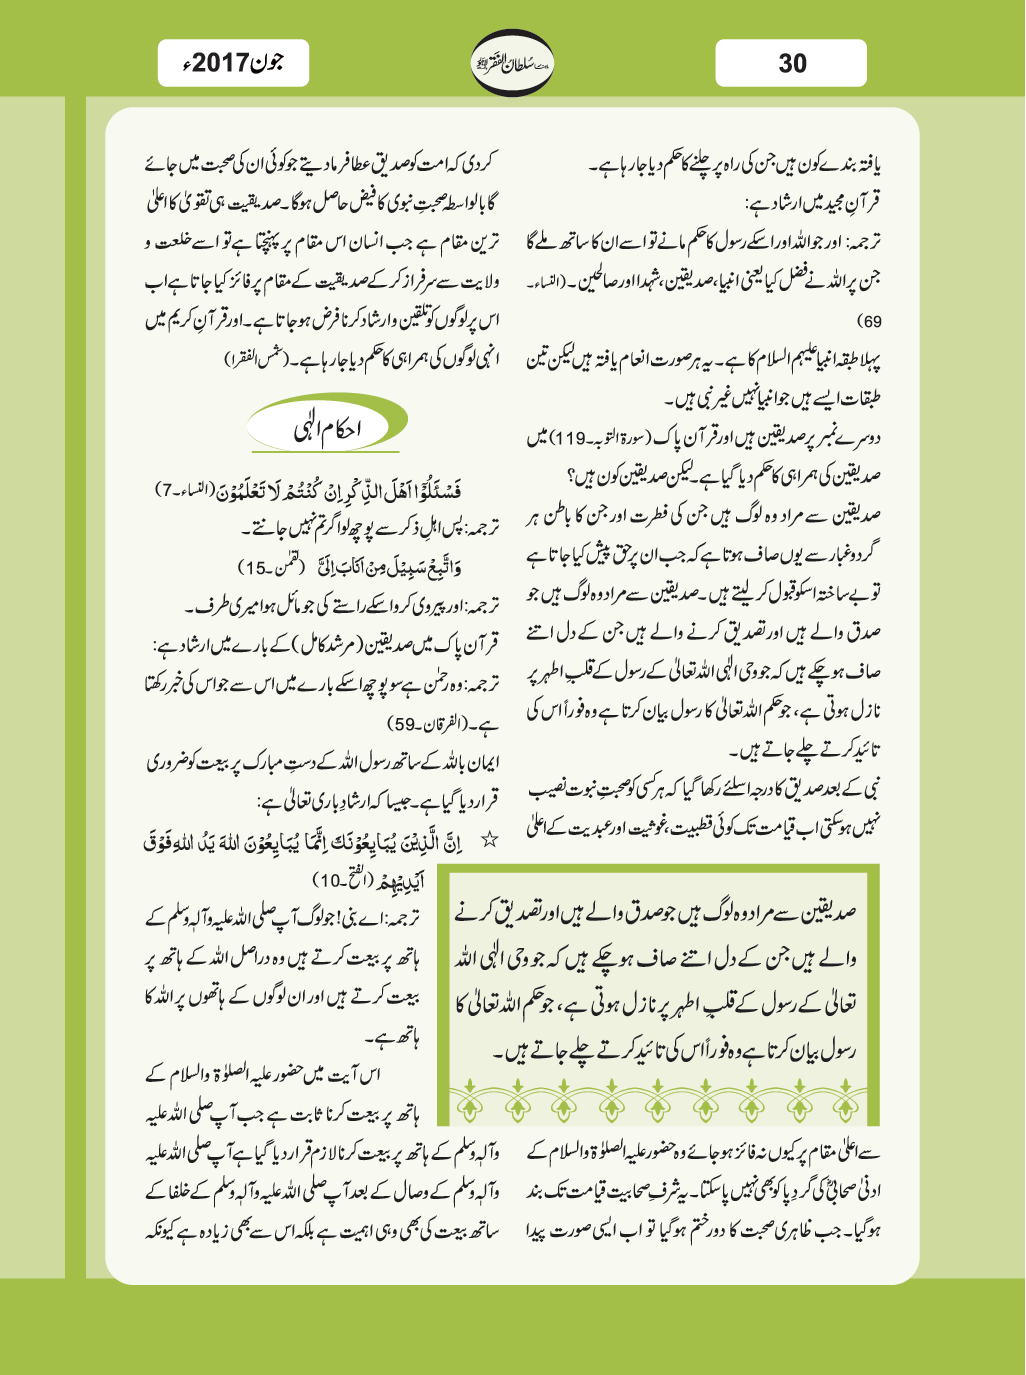 30
ماہنامہ سُلطان الفقر
جون 2017ء
یافتہ بندے کون ہیں جن کی راہ پر چلنے کا حکم دیا جا رہا ہے۔
قرآنِ مجید میں ارشاد ہے:
ترجمہ: اور جو اللہ اور اسکے رسول کا حکم مانے تو اسے ان کا ساتھ ملے گا
جن پر اللہ نے فضل کیا یعنی انبیا، صدیقین، شہدا اور صالحین۔ (النساء۔
69)
پہلا طبقہ انبیا علیہم السلام کا ہے۔ یہ ہر صورت انعام یافتہ ہیں لیکن تین
طبقات ایسے ہیں جو انبیا نہیں غیر نبی ہیں۔
دوسرے نمبر پر صدیقین ہیں اور قرآن پاک (سورۃ التوبہ۔119) میں
صدیقین کی ہمراہی کا حکم دیا گیا ہے۔ لیکن صدیقین کون ہیں؟
صدیقین سے مراد وہ لوگ ہیں جن کی فطرت اور جن کا باطن ہر
گرد و غبار سے یوں صاف ہوتا ہے کہ جب ان پر حق پیش کیا جاتا ہے
تو بے ساختہ اسکو قبول کر لیتے ہیں۔ صدیقین سے مراد وہ لوگ ہیں جو
صدق والے ہیں اور تصدیق کرنے والے ہیں جن کے دل اتنے
صاف ہو چکے ہیں کہ جو وحی الٰہی اللہ تعالیٰ کے رسول کے قلبِ اطہر پر
نازل ہوتی ہے، جو حکم اللہ تعالیٰ کا رسول بیان کرتا ہے وہ فوراً اس کی
تائید کرتے چلے جاتے ہیں۔
نبی کے بعد صدیق کا درجہ اسلئے رکھا گیا کہ ہر کسی کو صحبتِ نبوت نصیب
نہیں ہو سکتی اب قیامت تک کوئی قطبیت، غوثیت اور عبدیت کے اعلیٰ
صدیقین سے مراد وہ لوگ ہیں جو صدق والے ہیں اور تصدیق کرنے
والے ہیں جن کے دل اتنے صاف ہو چکے ہیں کہ جو وحی الٰہی اللہ
تعالیٰ کے رسول کے قلبِ اطہر پر نازل ہوتی ہے، جو حکم اللہ تعالیٰ کا
رسول بیان کرتا ہے وہ فوراً اس کی تائید کرتے چلے جاتے ہیں۔
سے اعلیٰ مقام پر کیوں نہ فائز ہو جائے وہ حضور علیہ الصلوٰۃ والسلام کے
ادنیٰ صحابیؓ کی گردِ پا کو بھی نہیں پا سکتا۔ یہ شرفِ صحابیت قیامت تک بند
ہو گیا۔ جب ظاہری صحبت کا دور ختم ہو گیا تو اب ایسی صورت پیدا
کر دی کہ امت کو صدیق عطا فرما دیتے جو کوئی ان کی صحبت میں جائے
گا بالواسطہ صحبتِ نبوی کا فیض حاصل ہوگا۔ صدیقیت ہی تقویٰ کا اعلیٰ
ترین مقام ہے جب انسان اس مقام پر پہنچتا ہے تو اسے خلعت و
ولایت سے سرفراز کر کے صدیقیت کے مقام پر فائز کیا جاتا ہے اب
اس پر لوگوں کو تلقین و ارشاد کرنا فرض ہو جاتا ہے۔ اور قرآنِ کریم میں
انہی لوگوں کی ہمراہی کا حکم دیا جا رہا ہے۔ (شمس الفقرا)
احکام الٰہی
فَسْئَلُوْٓا اَھْلَ الذِّکْرِ اِنْ کُنْتُمْ لَا تَعْلَمُوْنَ (النساء۔7)
ترجمہ: پس اہلِ ذکر سے پوچھ لو اگر تم نہیں جانتے۔
وَاتَّبِعْ سَبِیْلَ مِنْ اَنَابَ اِلَیَّ (لقمٰن۔15)
ترجمہ: اور پیروی کرو اسکے راستے کی جو مائل ہوا میری طرف۔
قرآن پاک میں صدیقین (مرشد کامل) کے بارے میں ارشاد ہے:
ترجمہ: وہ رحمٰن ہے سو پوچھ اسکے بارے میں اس سے جو اس کی خبر رکھتا
ہے۔ (الفرقان۔59)
ایمان باللہ کے ساتھ رسول اللہ کے دستِ مبارک پر بیعت کو ضروری
قرار دیا گیا ہے۔ جیسا کہ ارشادِ باری تعالیٰ ہے:
☆ اِنَّ الَّذِیْنَ یُبَایِعُوْنَکَ اِنَّمَا یُبَایِعُوْنَ اللہَ یَدُ اللہِ فَوْقَ
اَیْدِیْھِمْ (الفتح۔10)
ترجمہ: اے نبی! جو لوگ آپ صلی اللہ علیہ وآلہٖ وسلم کے
ہاتھ پر بیعت کرتے ہیں وہ دراصل اللہ کے ہاتھ پر
بیعت کرتے ہیں اور ان لوگوں کے ہاتھوں پر اللہ کا
ہاتھ ہے۔
اس آیت میں حضور علیہ الصلوٰۃ والسلام کے
ہاتھ پر بیعت کرنا ثابت ہے جب آپ صلی اللہ علیہ
وآلہٖ وسلم کے ہاتھ پر بیعت کرنا لازم قرار دیا گیا ہے آپ صلی اللہ علیہ
وآلہٖ وسلم کے وصال کے بعد آپ صلی اللہ علیہ وآلہٖ وسلم کے خلفا کے
ساتھ بیعت کی بھی وہی اہمیت ہے بلکہ اس سے بھی زیادہ ہے کیونکہ